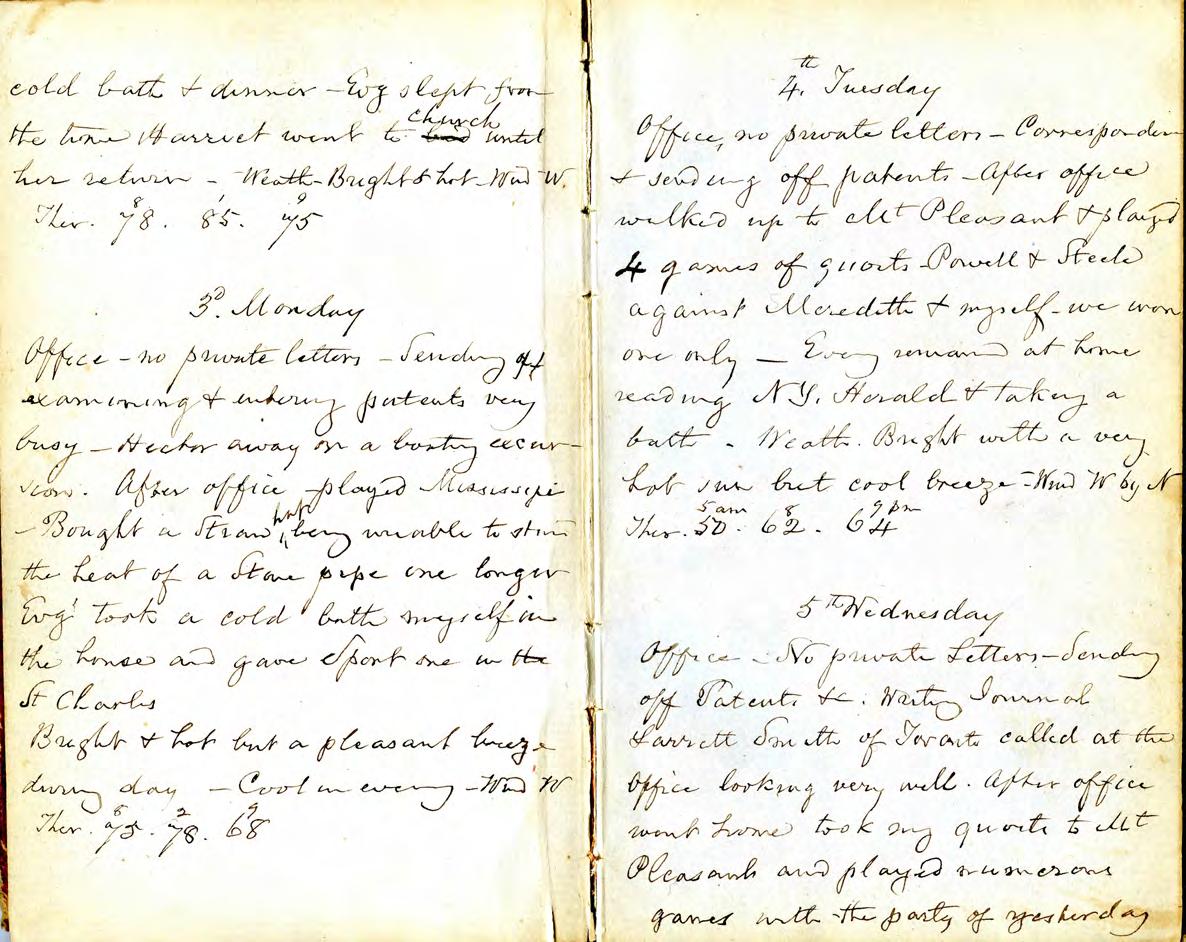 cold bath & dinner - Evg slept from
the time Harriet went to bed church until
her return - Weath - Bright & hot - Wind W.
8 1 9
Ther. 78. 85. 75
3d. Monday
Office - no private letters - Sending off
examining & entering patents very
busy - Hector away on a boating excur-
sion. After office played Mississipi
- Bought a Straw hat being unable to stand
the heat of a Stove pipe one longer
Evg took a cold bath myself in
the house and gave Sport one in the
St Charles
Bright & hot but a pleasant breeze
during day - Cool in evening - Wind W
8 2 9
Ther. 75. 78. 68
4th. Tuesday
Office, no private letters - Correspondin
& sending off patents - After office
walked up to Mt Pleasant & played
4 games of quoits - Powell & Steele
against Meredith & myself - we won
one only - Eveng remained at home
reading N.Y. Herald & taking a
bath - Weath. Bright with a very
hot sun but cool breeze - Wind W by N
5 am 8 9 pm
Ther. 50. 62. 64
5th Wednesday
Office - No private Letters - Sending
off Patents &c. Writing Journal
Larrett Smith of Toronto called at the
Office looking very well. After office
went home took my quoits to Mt
Pleasant and played numerous
games with the party of yesterday